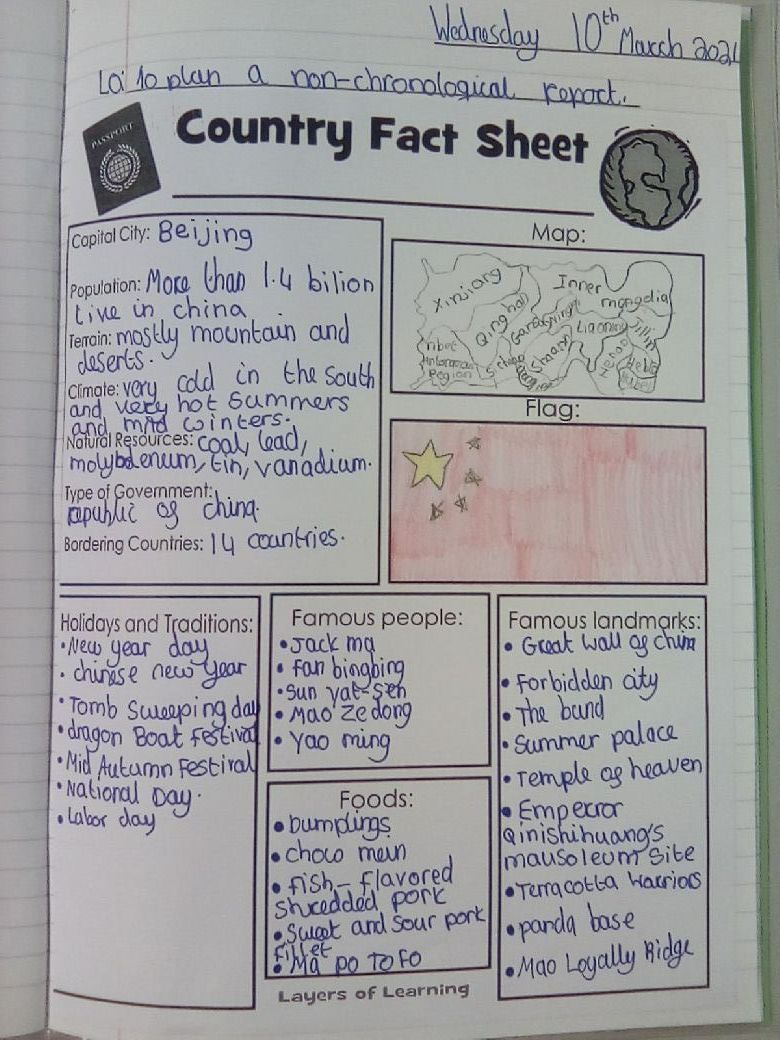 Wednesday 10th March 2021
Lo: To plan a non-chronological report.
PASSPORT
Country Fact Sheet
Capital City: Beijing
Population: More than 1.4 bilion
live in china
Terrain: mostly mountain and
deserts.
Climate: very cold in the south
and very hot summers
and mild winters.
Natural Resources: coal, lead,
molybdenum, tin, vanadium.
Type of Government:
republic of china.
Bordering Countries: 14 countries.
Map:
Xinjiang
Inner
mongolia
Qinghai
Liaoning
Jilin
Tibet
Region
Shaanxi
Hebei
Flag:
Holidays and Traditions:
• New year day
• chinese new year
• Tomb Sweeping day
• dragon Boat festival
• Mid Autumn Festival
• National Day.
• Labor day
Famous people:
• Jack ma
• Fan bingbing
• Sun yat-sen
• Mao Ze dong
• Yao ming
Foods:
• Dumplings
• chow mein
• Fish-flavored
shredded pork
• Sweet and sour pork
fillet
• Ma Po TOFO
Famous landmarks:
• Great wall of china
• Forbidden city
• The bund
• Summer palace
• Temple of heaven
• Emperror
Qinishihuang's
mausoleum site
• Terracotta Warriors
• panda base
• Mao Loyally Ridge
Layers of Learning